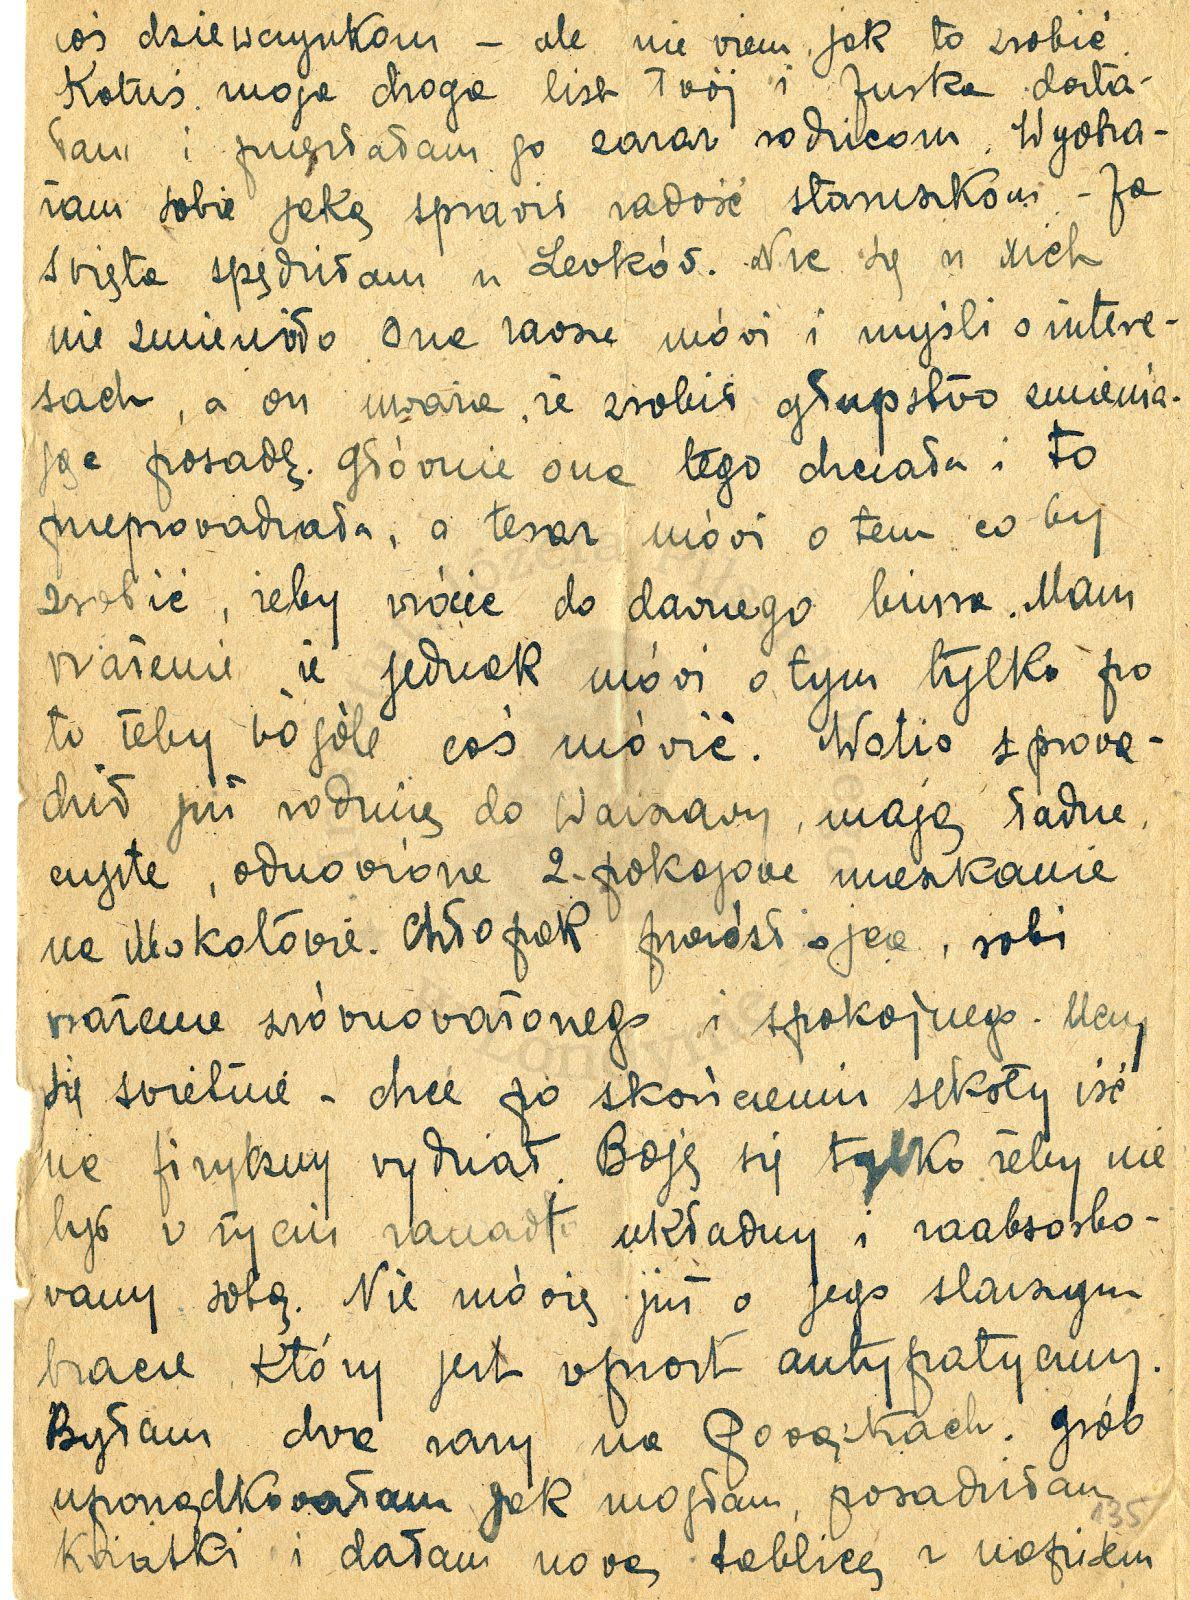 coś dziewczynkom – ale nie wiem, jak to zrobić.
Kotuś moja droga list Twój i Juska dosta-
łam i przesłałam go zaraz rodzicom. Wyobra-
żam sobie jaką sprawił radość staruszkom. – Ja
święta spędziłam u Lewków. Nic się u nich
nie zmieniło. Ona zawsze mówi i myśli o intere-
sach, a on uważa, że zrobił głupstwo zmienia-
jąc posadę. Głównie ona tego chciała i to
przeprowadziła, a teraz mówi o tem co by
zrobić, żeby wrócić do dawnego biura. Mam
wrażenie że jednak mówi o tym tylko po
to żeby wogóle coś mówić. Wacio sprowa-
dził już rodzinę do Warszawy, mają ładne,
czyste, odnowione 2-pokojowe mieszkanie
na Mokotowie. Chłopak przerósł ojca, robi
wrażenie zrównoważonego i spokojnego. Uczy
się świetnie – chce po skończeniu szkoły iść
na fizyczny wydział. Boję się tylko żeby nie
był w życiu zanadto układny i zaabsorbo-
wany sobą. Nie mówię już o jego starszym
bracie, który jest wprost antypatyczny.
Byłam dwa razy na Powązkach. Grób
uporządkowałam jak mogłam, posadziłam
kwiatki i dałam nową tablicę z napisem
135
Józefa Pił
w Londynie